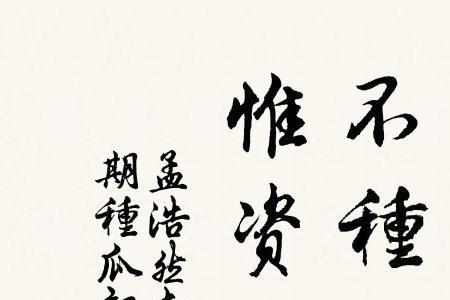 不種
惟资
孟浩然
期種瓜